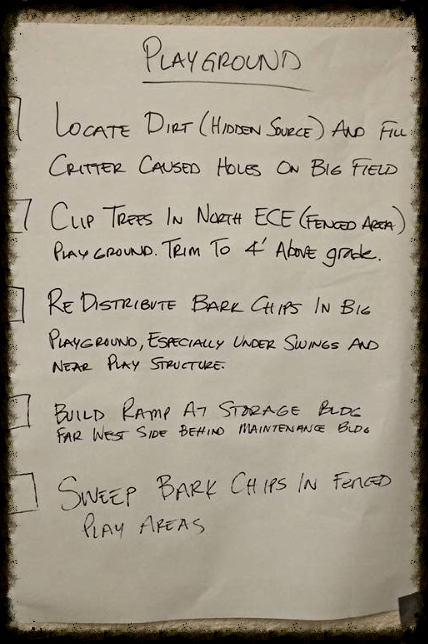 PLAYGROUND
LOCATE DIRT (HIDDEN SOURCE) AND FILL
CRITTER CAUSED HOLES ON BIG FIELD
CLIP TREES IN NORTH ECE (FENCED AREA)
PLAYGROUND. TRIM TO 4' ABOVE grade.
RE DISTRIBUTE BARK CHIPS IN BIG
PLAYGROUND, ESPECIALLY UNDER SWINGS AND
NEAR PLAY STRUCTURE.
BUILD RAMP AT STORAGE BLDG
FAR WEST SIDE BEHIND MAINTENANCE BLDG
SWEEP BARK CHIPS IN FENCED
PLAY AREAS